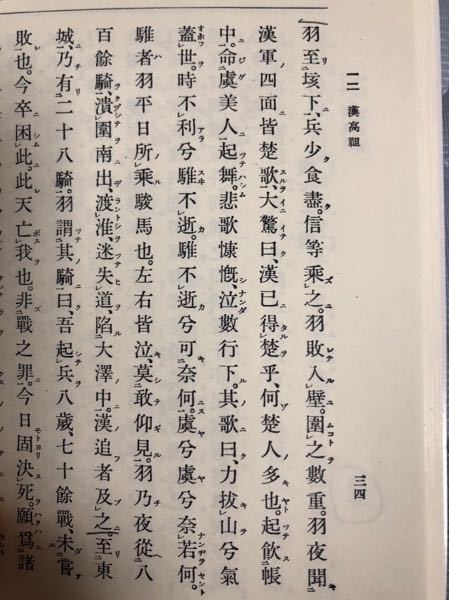 一二 漢高祖
三四
羽至垓下、兵少食盡。信等乘之。羽敗入壁。圍之數重。羽夜聞
漢軍四面皆楚歌、大驚曰、漢已得楚乎、何楚人多也。起飮帳
中。命虞美人起舞。悲歌慷慨、泣數行下。其歌曰、力拔山兮氣
蓋世。時不利兮騅不逝。騅不逝兮可奈何。虞兮虞兮奈若何。
騅者羽平日所乘駿馬也。左右皆泣、莫敢仰見。羽乃夜從八
百餘騎、潰圍南出、渡淮、迷失道、陷大澤中。漢追者及之。至東
城、乃有二十八騎。羽謂其騎曰、吾起兵八歲、七十餘戰、未嘗
敗也。今卒困此。此天亡我也。非戰之罪。今日固決死。願爲諸